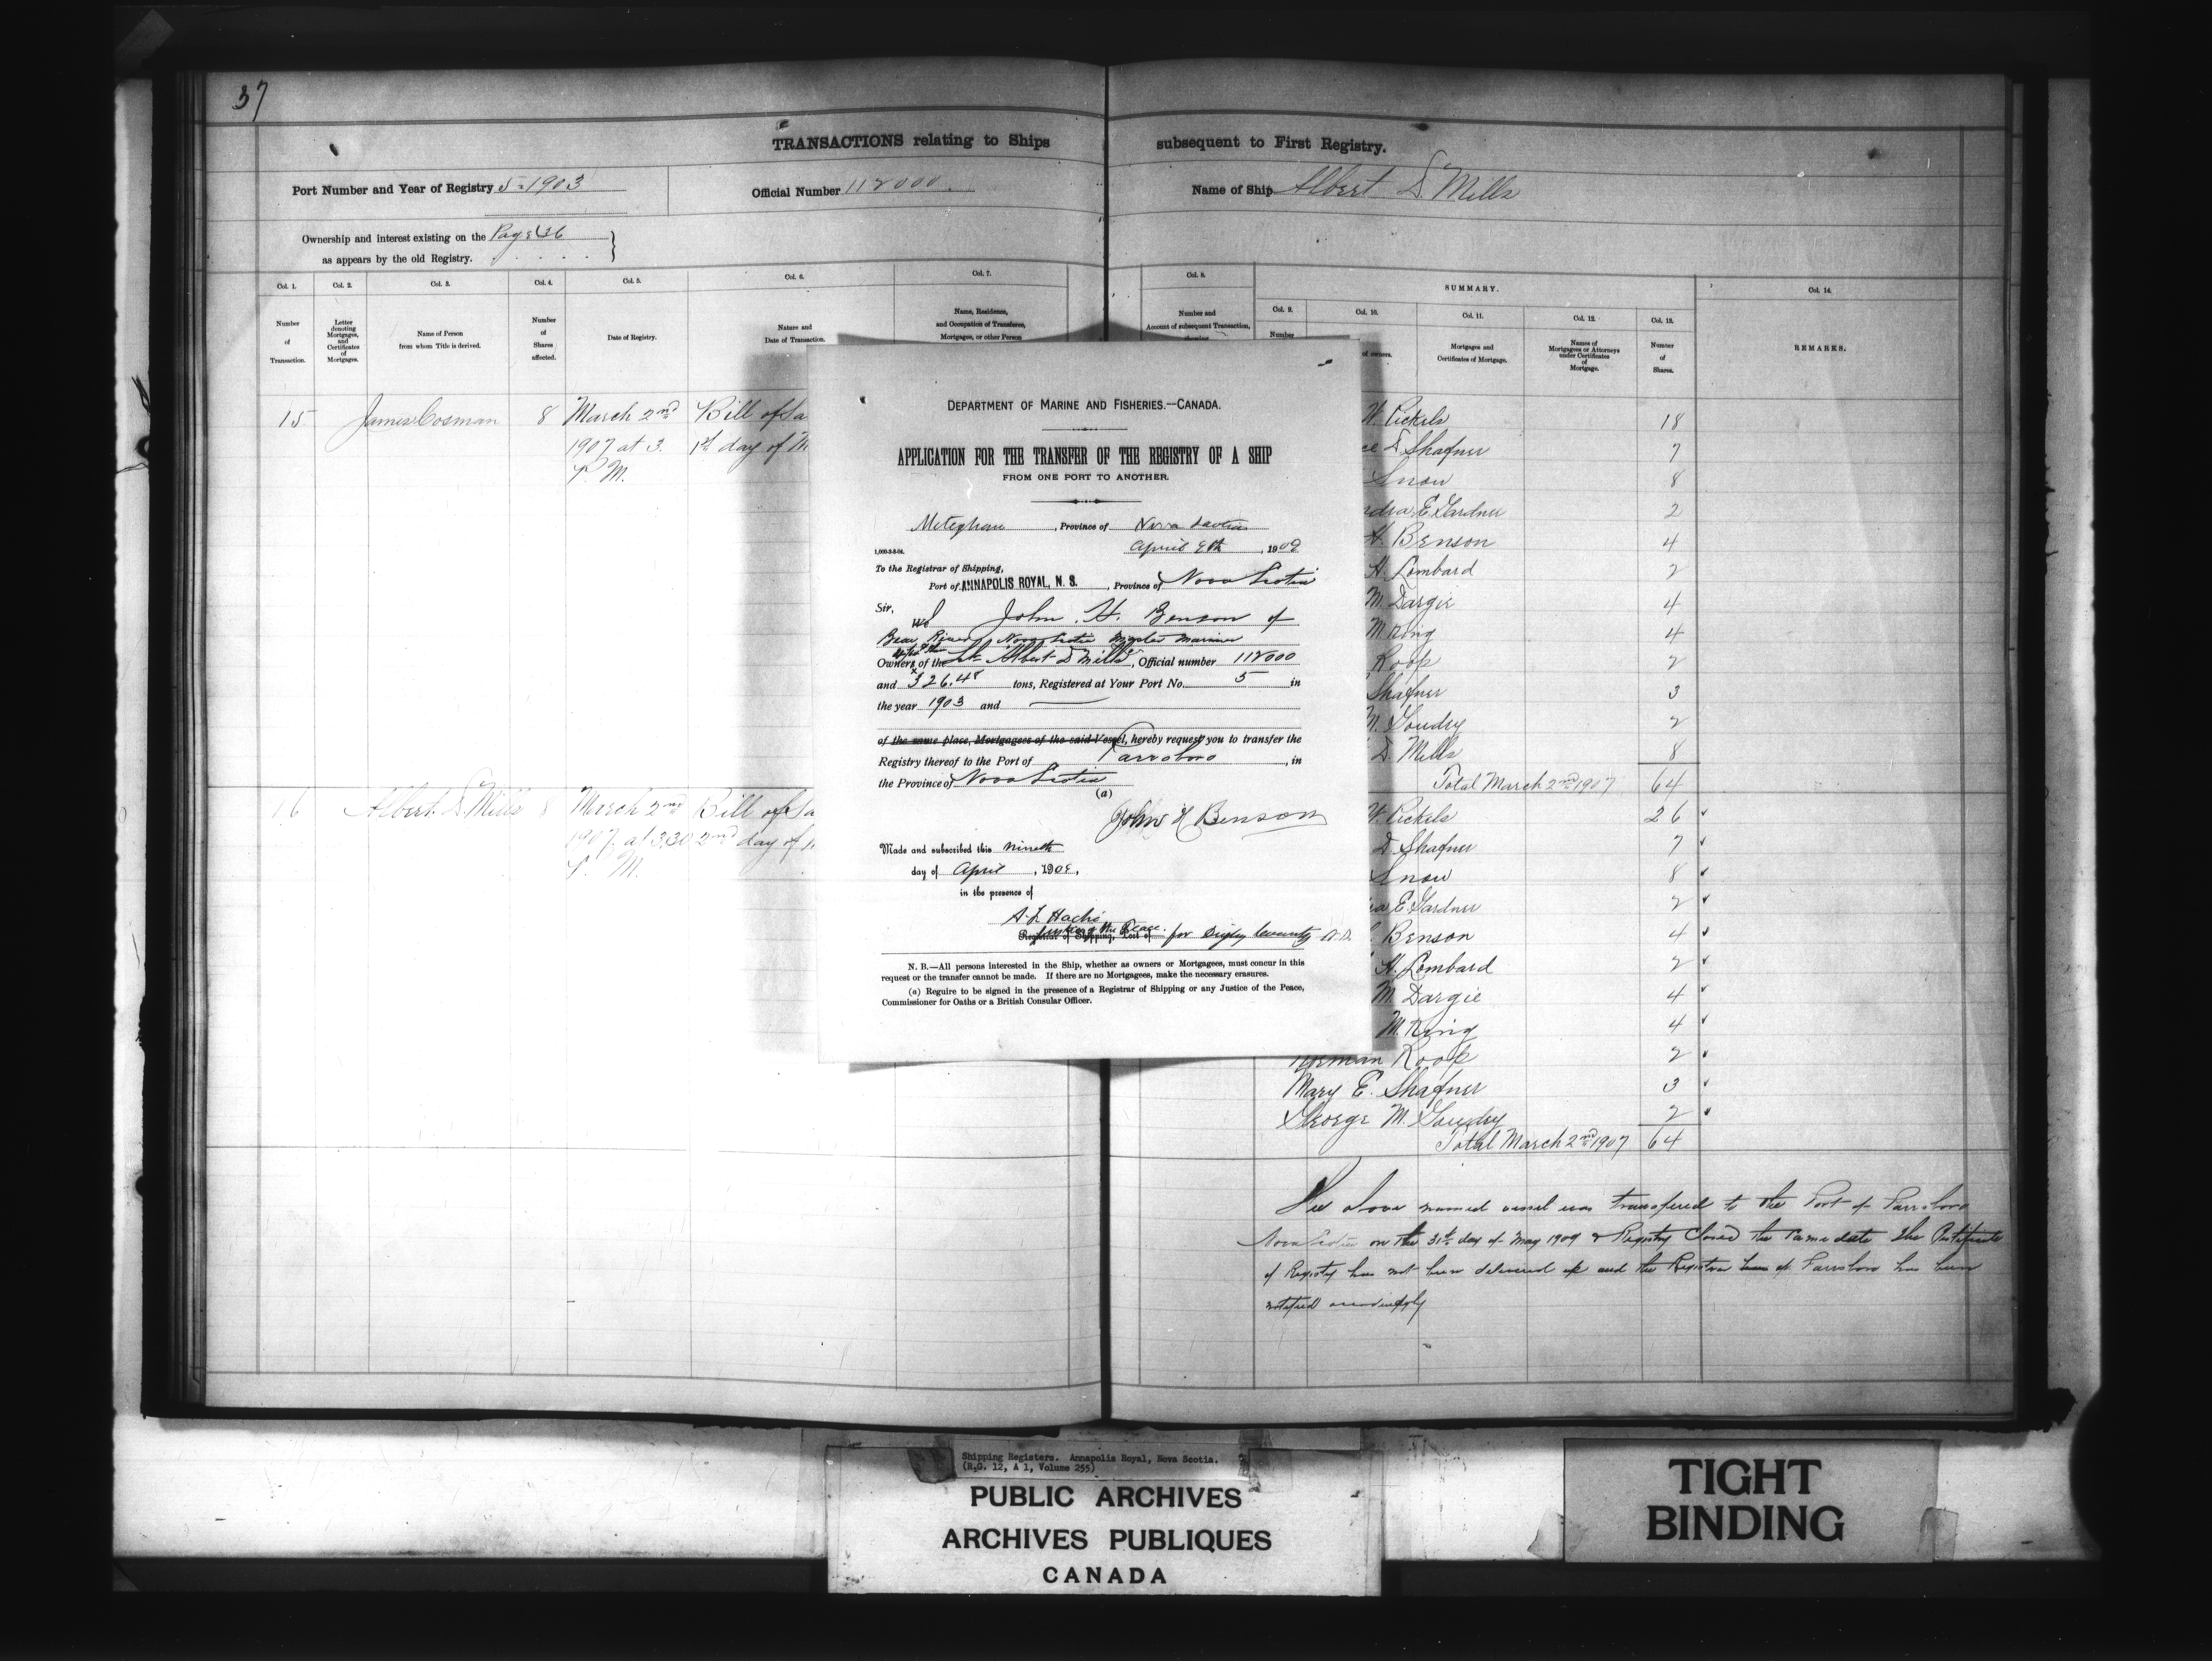 37
TRANSACTIONS relating to Ships subsequent to First Registry.
Port Number and Year of Registry 5-1903
Official Number 112000
Name of Ship Albert D. Mills
Ownership and interest existing on the Page 36
as appears by the old Registry.
Col. 1. Col. 2. Col. 3. Col. 4. Col. 5. Col. 6. Col. 7. Col. 8. SUMMARY. Col. 14.
Col. 9. Col. 10. Col. 11. Col. 12. Col. 13.
Number of Transaction.
Letter denoting Mortgages, and Certificates of Mortgages.
Name of Person from whom Title is derived.
Number of Shares affected.
Date of Registry.
Nature and Date of Transaction.
Name, Residence,
and Occupation of Transferee,
Mortgagee, or other Person
Number and
Account of subsequent Transaction,
showing
Number
of owners.
Mortgages and Certificates of Mortgage.
Names of Mortgagees or Attorneys under Certificates of Mortgage.
Number of Shares.
REMARKS.
15 James Cosman 8 March 2nd Bill of Sa
1907 at 3. 1st day of M
P. M.
16 Albert D. Mills 8 March 2nd Bill of Sa
1907 at 3.30 2nd day of
P. M.
DEPARTMENT OF MARINE AND FISHERIES.—CANADA.
APPLICATION FOR THE TRANSFER OF THE REGISTRY OF A SHIP
FROM ONE PORT TO ANOTHER.
Meteghan, Province of Nova Scotia
1,000-3-8-04.
April 9th, 1909
To the Registrar of Shipping,
Port of ANNAPOLIS ROYAL, N. S., Province of Nova Scotia
Sir,
We I John H. Benson of
Bear River, Nova Scotia Master Mariner
Owners of the Sch Albert D Mills, Official number 112000
and 326.48 tons, Registered at Your Port No. 5 in
the year 1903 and
of the same place, Mortgagees of the said Vessel, hereby request you to transfer the
Registry thereof to the Port of Parrsboro, in
the Province of Nova Scotia
(a)
John H Benson
Made and subscribed this nineth
day of April, 1909,
in the presence of
A. L. Haché
Justice of the Peace.
Registrar of Shipping, Port of for Digby County N.S.
N. B.—All persons interested in the Ship, whether as owners or Mortgagees, must concur in this
request or the transfer cannot be made. If there are no Mortgagees, make the necessary erasures.
(a) Reguire to be signed in the presence of a Registrar of Shipping or any Justice of the Peace,
Commissioner for Oaths or a British Consular Officer.
W. Pickels 18
D. Shafner 7
Snow 8
E. Gardner 2
H. Benson 4
H. Lombard 2
M. Dargie 4
M. King 4
Roop 2
Shafner 3
M. Goudry 2
D. Mills 8
Total March 2nd 1907 64
W. Pickels 26
D. Shafner 7
Snow 8
E. Gardner 2
Benson 4
H. Lombard 2
M. Dargie 4
M. King 4
Norman Roop 2
Mary E. Shafner 3
George M. Goudry 2
Total March 2nd 1907 64
The above named vessel was transfered to the Port of Parrsboro
Nova Scotia on the 31st day of May 1909 & Registry Closed the same date The Certificate
of Registry has not been delivered up and the Registrar of Parrsboro has been
notified accordingly
Shipping Registers. Annapolis Royal, Nova Scotia.
(R.G. 12, A 1, Volume 255)
PUBLIC ARCHIVES
ARCHIVES PUBLIQUES
CANADA
TIGHT
BINDING